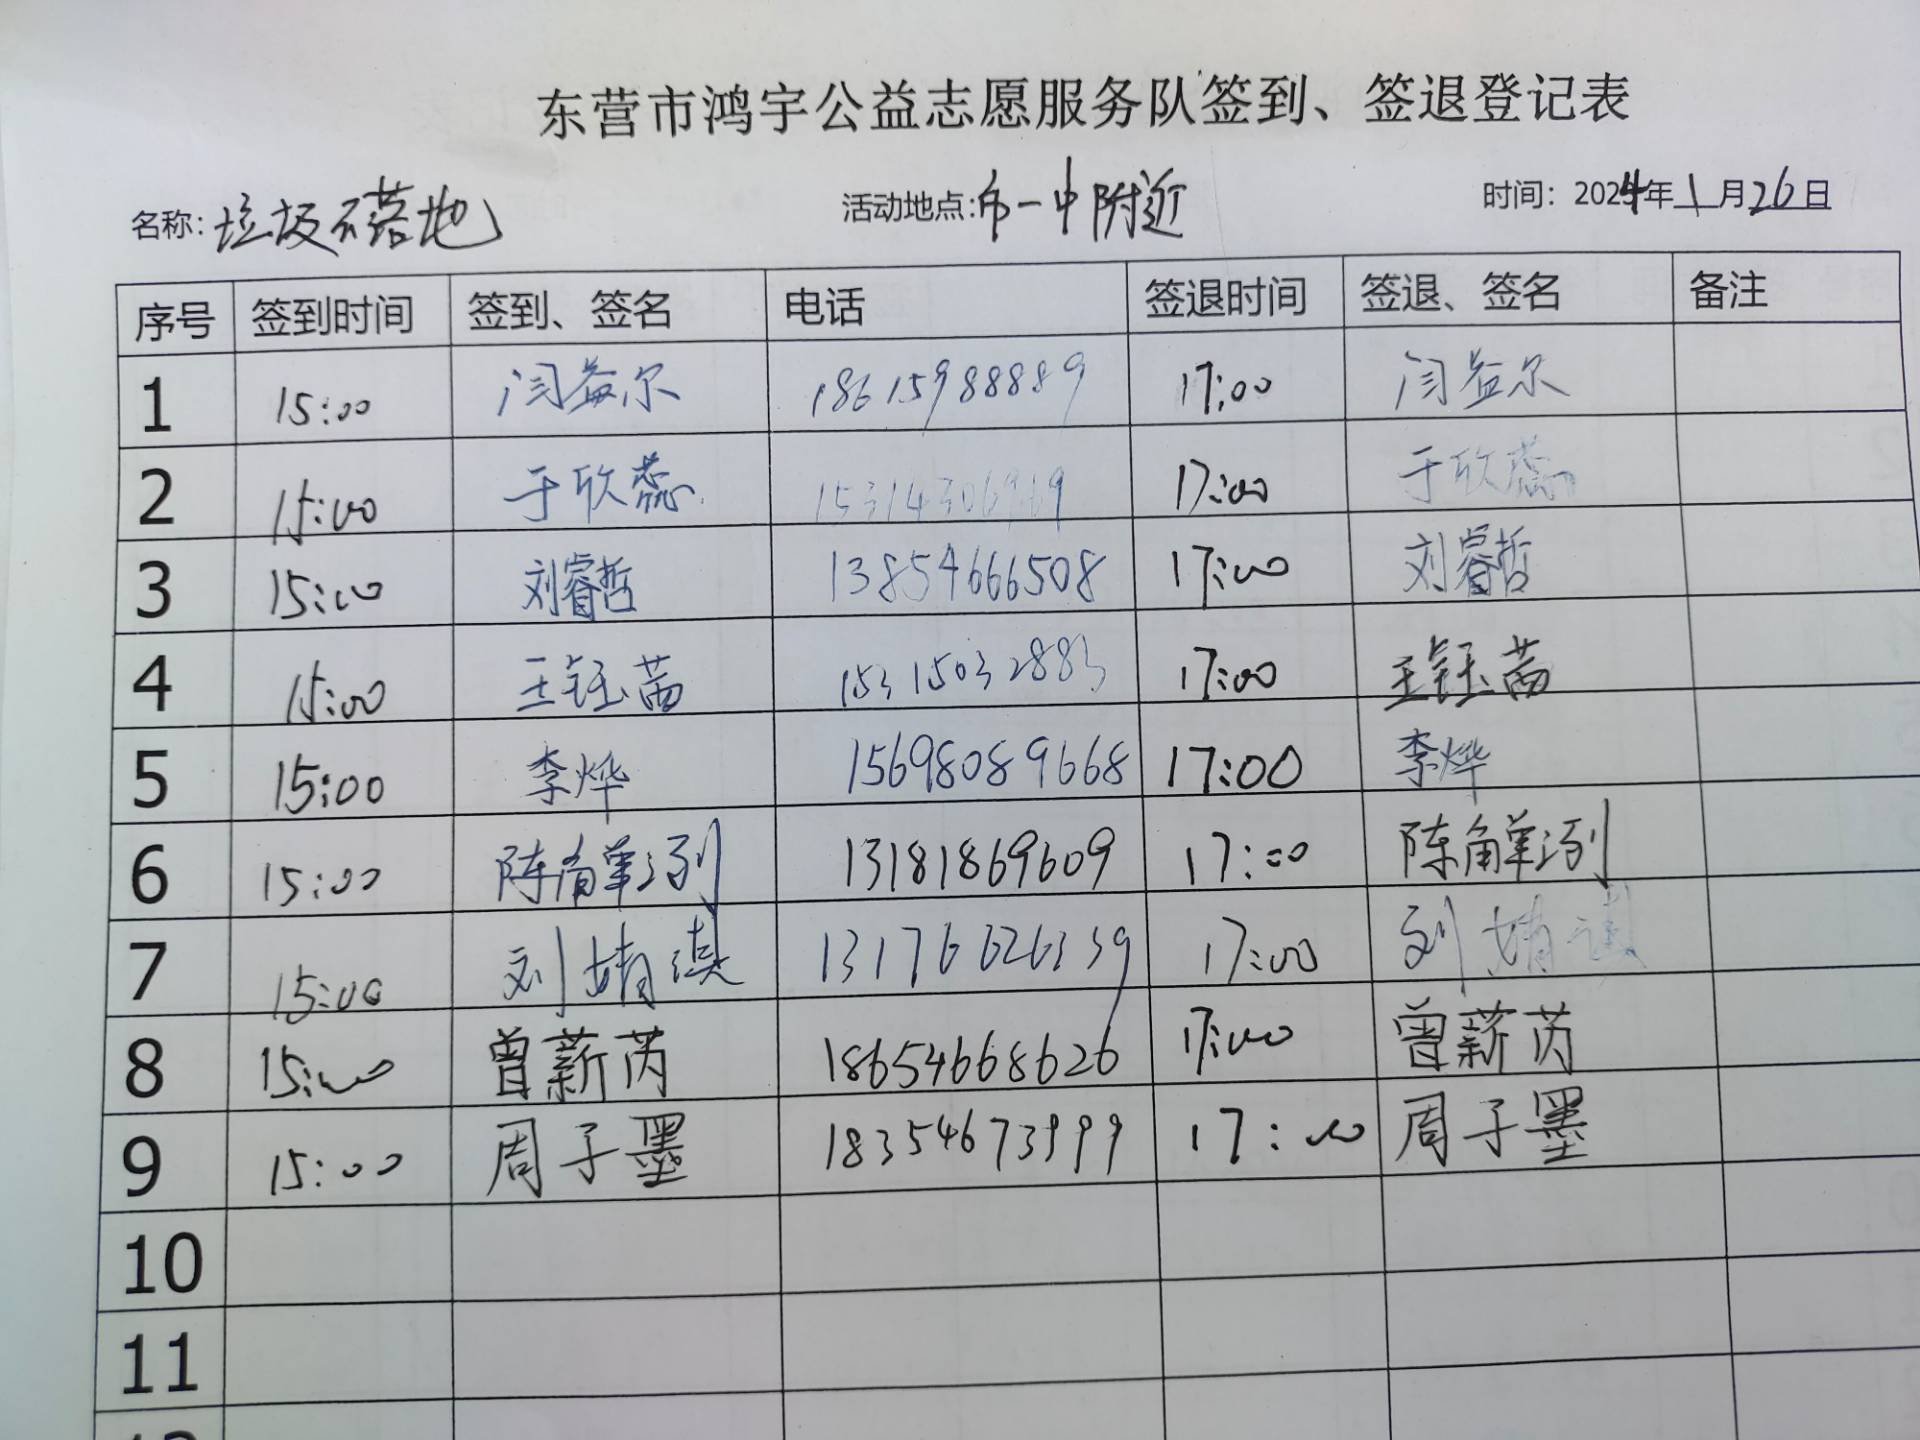 东营市鸿宇公益志愿服务队签到、签退登记表
名称：垃圾不落地 活动地点：市一中附近 时间：2024年1月26日
序号 签到时间 签到、签名 电话 签退时间 签退、签名 备注
1 15:00 闫益尔 18615988889 17:00 闫益尔
2 15:00 于欣蕊 15314306969 17:00 于欣蕊
3 15:00 刘睿哲 13854666508 17:00 刘睿哲
4 15:00 王钰茜 15315032883 17:00 王钰茜
5 15:00 李烨 15698089668 17:00 李烨
6 15:00 陈 13181869609 17:00 陈
7 15:00 刘婧淇 13176626339 17:00 刘婧淇
8 15:00 曾薪芮 18654668626 17:00 曾薪芮
9 15:00 周子墨 18354673999 17:00 周子墨
10
11